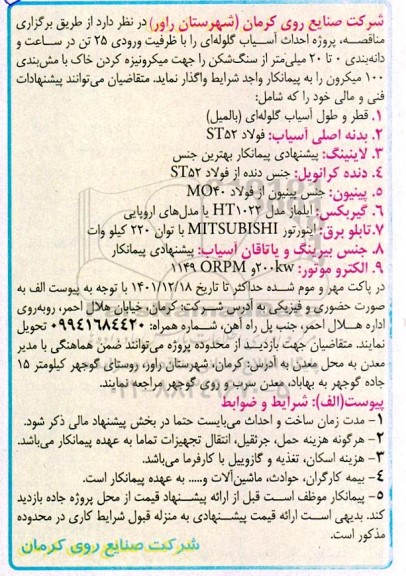 شرکت صنایع روی کرمان (شهرستان راور) در نظر دارد از طریق برگزاری
مناقصه، پروژه احداث آسیاب گلوله‌ای را با ظرفیت ورودی ۲۵ تن در ساعت و
دانه‌بندی ۰ تا ۲۰ میلی‌متر از سنگ‌شکن را جهت میکرونیزه کردن خاک با مش‌بندی
۱۰۰ میکرون را به پیمانکار واجد شرایط واگذار نماید. متقاضیان می‌توانند پیشنهادات
فنی و مالی خود را که شامل:
۱. قطر و طول آسیاب گلوله‌ای (بالمیل)
۲. بدنه اصلی آسیاب: فولاد ST۵۲
۳. لاینینگ: پیشنهادی پیمانکار بهترین جنس
۴. دنده کرانویل: جنس دنده از فولاد ST۵۲
۵. پینیون: جنس پینیون از فولاد MO۴۰
۶. گیربکس: ایلماز مدل HT۱۰۲۲ یا مدل‌های اروپایی
۷. تابلو برق: اینورتور MITSUBISHI با توان ۲۲۰ کیلو وات
۸. جنس بیرینگ و یاتاقان آسیاب: پیشنهادی پیمانکار
۹. الکترو موتور: ۲۰۰kw و ORPM ۱۱۴۹
در پاکت مهر و موم شده حداکثر تا تاریخ ۱۴۰۱/۱۲/۱۸ با توجه به پیوست الف به
صورت حضوری و فیزیکی به آدرس شرکت: کرمان، خیابان هلال احمر، روبه‌روی
اداره هلال احمر، جنب پل راه آهن، شماره همراه: ۰۹۹۴۱۶۸۴۴۲۰ تحویل
نمایند. متقاضیان جهت بازدید از محدوده پروژه می‌توانند ضمن هماهنگی با مدیر
معدن به محل معدن به آدرس: کرمان، شهرستان راور، روستای گوجهر کیلومتر ۱۵
جاده گوجهر به بهاباد، معدن سرب و روی گوجهر مراجعه نمایند.
پیوست(الف): شرایط و ضوابط
۱- مدت زمان ساخت و احداث می‌بایست حتما در بخش پیشنهاد مالی ذکر شود.
۲- هرگونه هزینه حمل، جرثقیل، انتقال تجهیزات تماما به عهده پیمانکار می‌باشد.
۳- هزینه اسکان، تغذیه و گازوییل با کارفرما می‌باشد.
۴- بیمه کارگران، حوادث، ماشین‌آلات و..... به عهده پیمانکار است.
۵- پیمانکار موظف است قبل از ارائه پیشنهاد قیمت از محل پروژه جاده بازدید
کند. بدیهی است ارائه قیمت پیشنهادی به منزله قبول شرایط کاری در محدوده
مذکور است.
شرکت صنایع روی کرمان